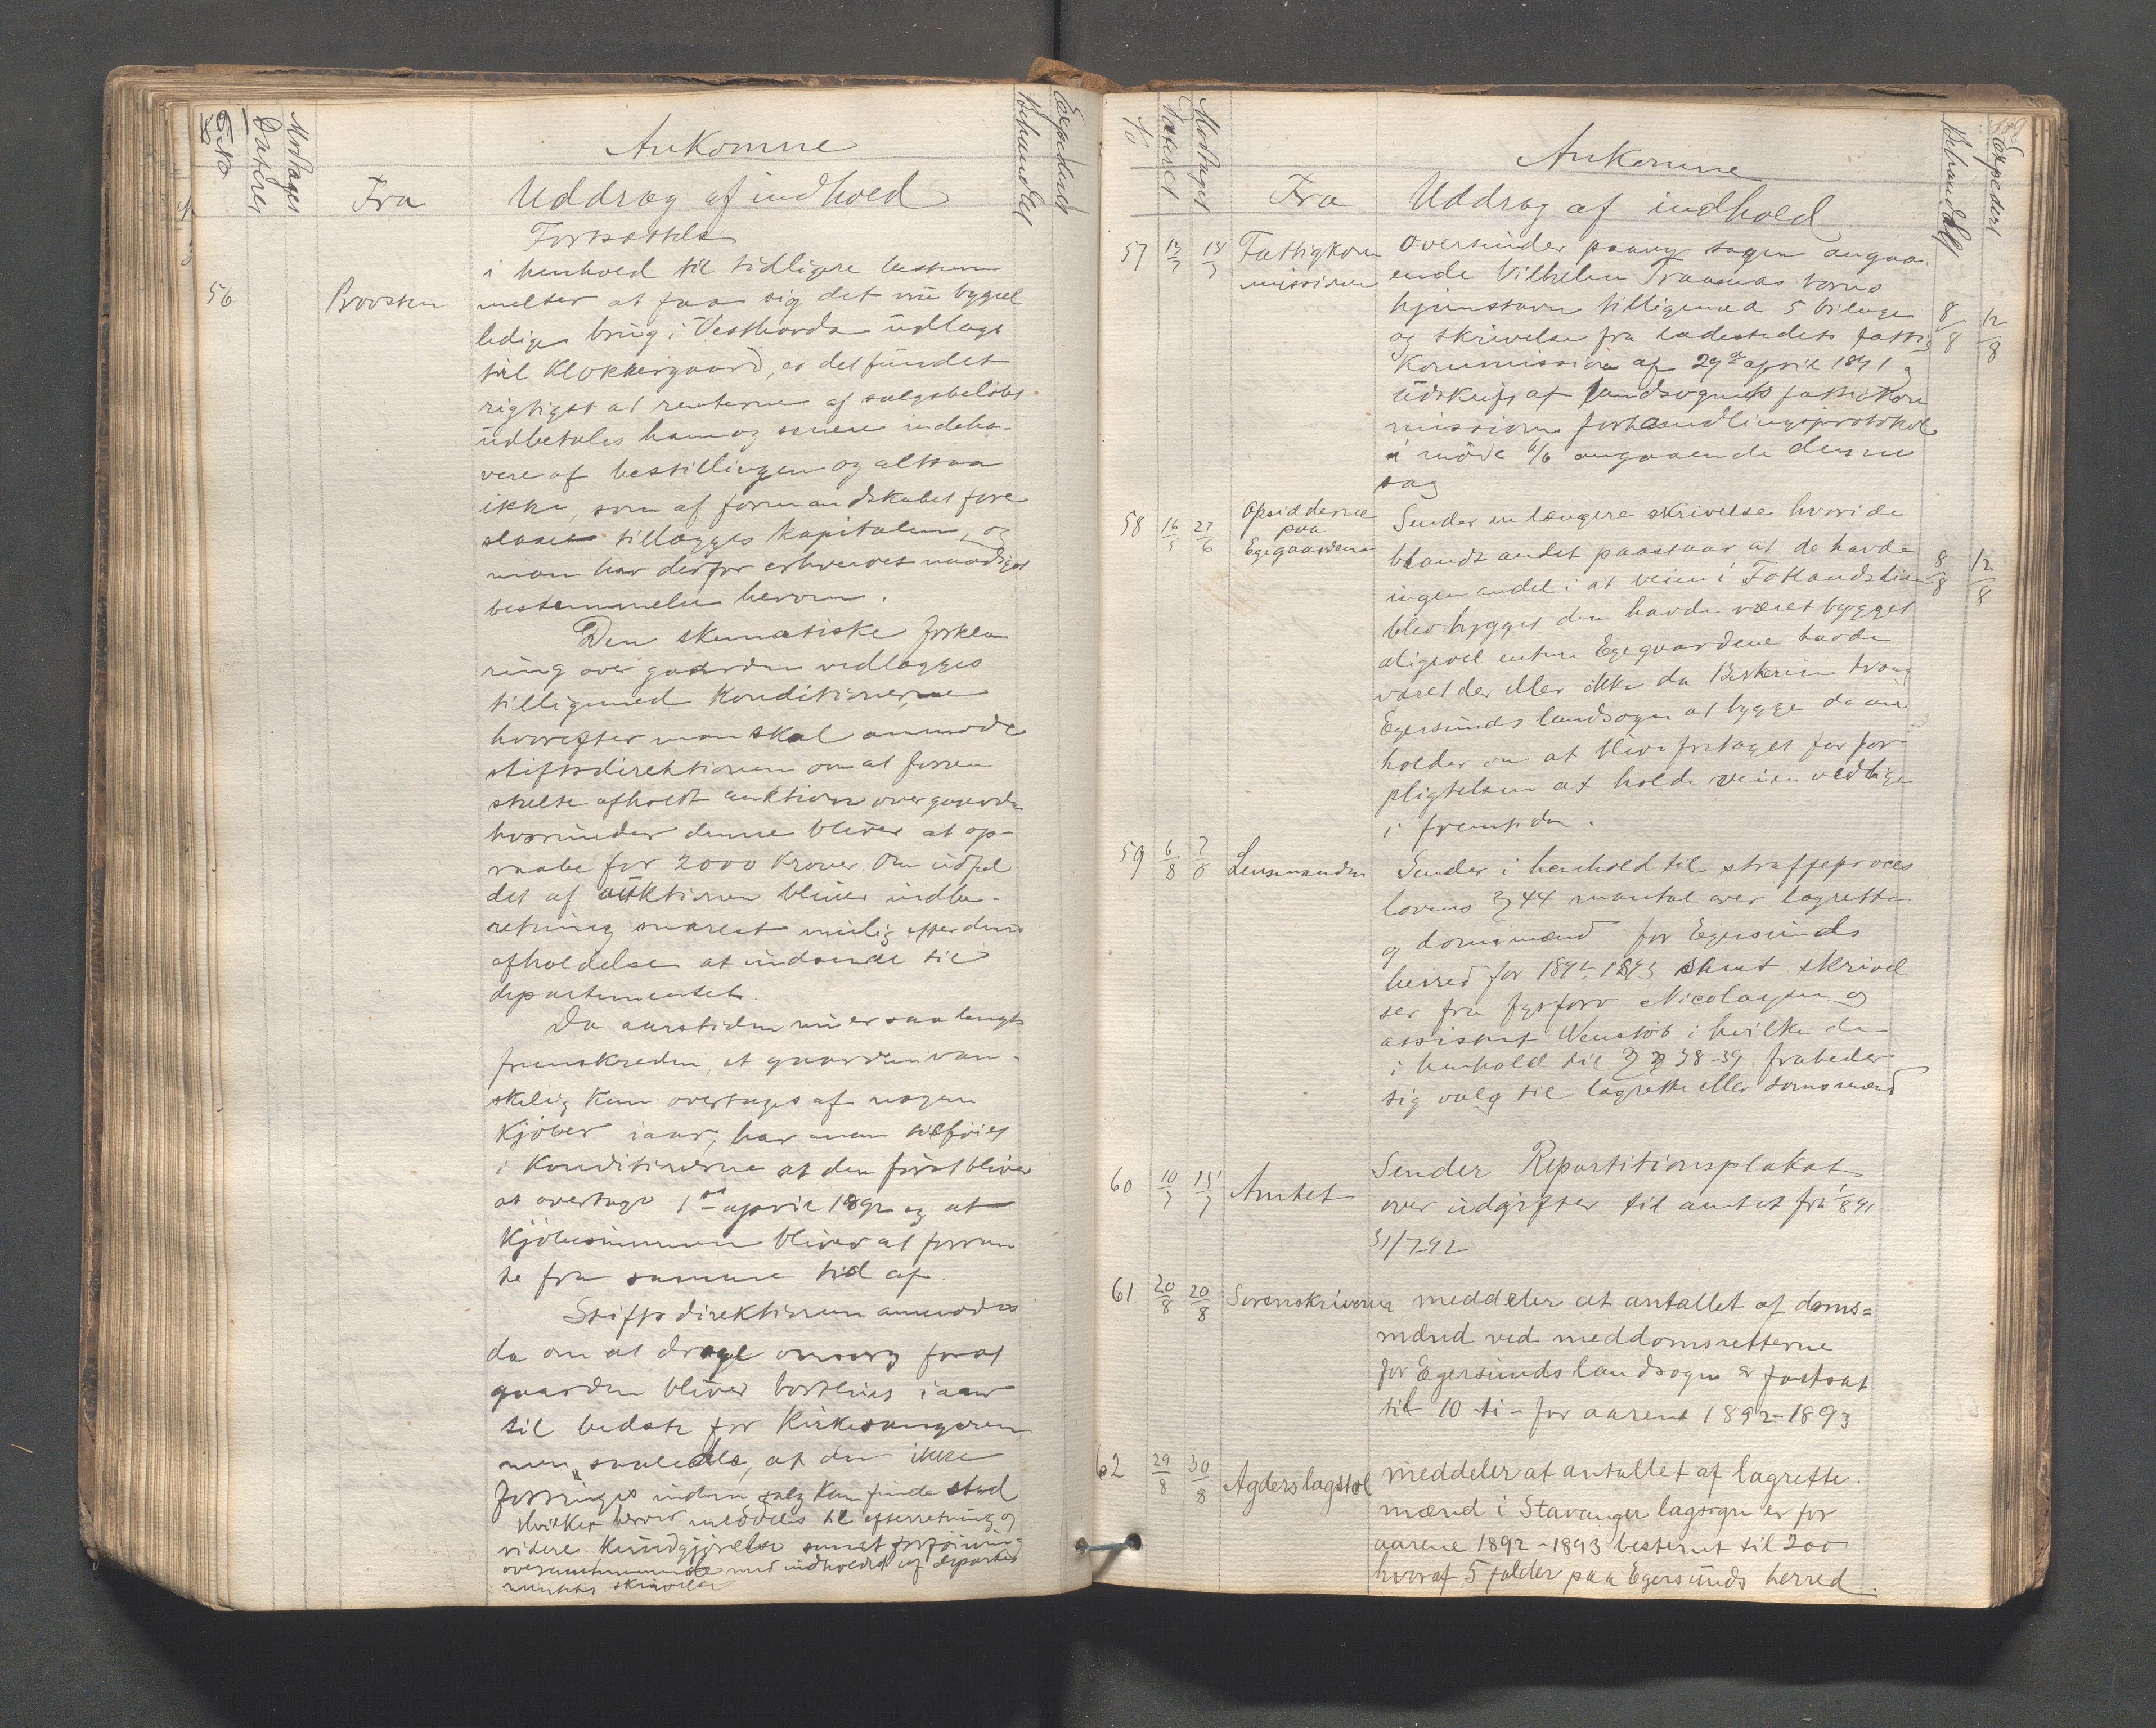 Ankomne
No
Dateret
Modtaget
Fra
Uddrag af indhold
Behandlet
Expederet
Fortsættels
56
Provsten
i henhold til tidligere bestem
melser at faa sig det nu byggel
ledige brug i Vesthavda udlagt
til Klokkergaard, er det fundet
rigtigst at renterne af salgsbeløbet
udbetales ham og senere indeha-
vere af bestillingen og altsaa
ikke, som af formandskabet fore
slaaet tillægges kapitalen, og
man har derfor erhvervet naadigst
bestemmelse herom.
Den skematiske forkla
ring over gaarden vedlægges
tilligemed Konditionerne
hvorefter man skal anmode
stiftsdirektionen om at foran
stalte afholdt auktion over gaarden
hvorunder denne bliver at op-
raabe for 2000 Kroner. Om udfal
det af auktionen bliver indbe-
retning snarest mulig efter dens
afholdelse at indsende til
departementet.
Da aarstiden nu er saa langt
fremskreden, at gaarden van-
skelig kan overtages af nogen
Kjøber iaar, har man tilføiet
i Konditionerne at den først bliver
at overtage 1ste april 1892 og at
Kjøbesummen bliver at forren
te fra samme tid af.
Stiftsdirektionen anmodes
da om at drage omsorg forat
gaarden bliver bortleiet iaar
til bedste for Kirkesangeren
men saaledes, at den ikke
forringes inden salg kan finde sted
Hvilket herved meddeles til efterretning og
videre Kundgjørelse samt forføining
overensstemmende med indholdet af departe
mentets skrivelse
Ankomne
No
Dateret
Modtaget
Fra
Uddrag af indhold
Behandlet
Expederet
57 13/7 18/7 Fattigkom
missionen
oversender paany sagen angaa
ende Vilhelm Traasnas barns
hjemstavn tilligemed 5 bilage
og skrivelse fra ladestedets fattig
Kommission af 29de april 1891 og
udskrift af landsognets fattigkom
missions forhandlingsprotokol
i møde 6/6 angaaende denne
sag
8/8 12/8
58 16/5 27/6 Opsidderne
paa
Egegaardene
Sender en længere skrivelse hvori de
blandt andet paastaar at de havde
ingen andel i at veien i Fotlandslien
blev bygget den havde været bygget
aligevel enten Egegaardene havde
været der eller ikke da Birkrem tvang
Egersunds landsogn at bygge de an
holder om at blive fritaget for for
pligtelsen at holde veien vedlige
i fremtiden.
8/8 12/8
59 6/8 7/8 Lensmanden
Sender i henhold til straffeproces
lovens § 44 mantal over lagrette
og domsmænd for Egersunds
herred for 1892-1893 samt skrivel
ser fra fyrforv Nicolaysen og
assistent Wenstøb i hvilke de
i henhold til §§ 38-39 frabeder
sig valg til lagrette eller domsmænd
60 10/7 15/7 Amtet
Sender Repartitionsplakat
over udgifter til amtet fra 1/8 91
31/7 92
61 20/8 20/8 Sorenskriveren
meddeler at antallet af doms=
mænd ved meddomsretterne
for Egersunds landsogn er fastsat
til 10-ti- for aarene 1892-1893
62 29/8 30/8 Agders lagstol
meddeler at antallet af lagrette.
mænd i Stavanger lagsogn er for
aarene 1892-1893 bestemt til 200
hvoraf 5 falder paa Egersunds herred.